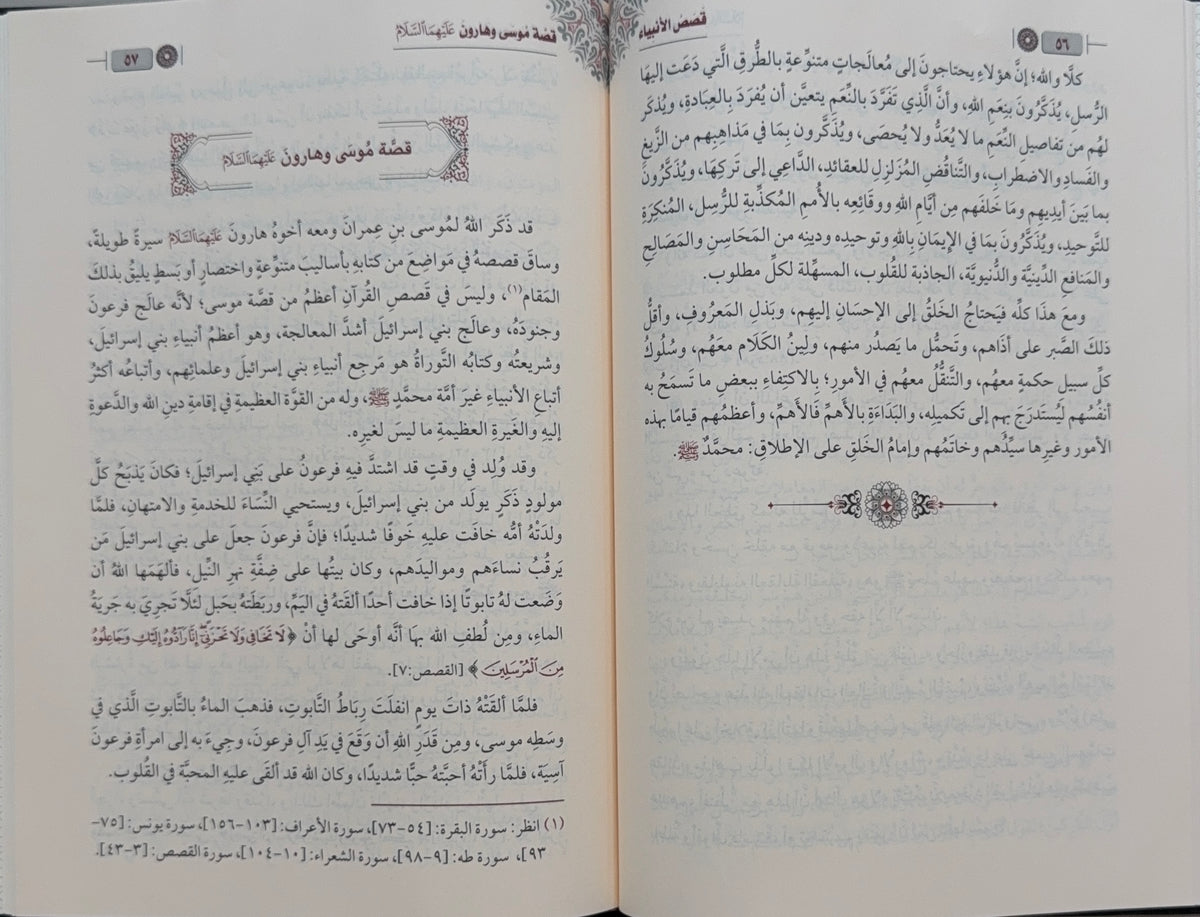 قصص الأنبياء
٥٦
كلَّا والله؛ إنَّ هؤلاءِ يحتاجونَ إلى مُعالَجاتٍ متنوِّعةٍ بالطُّرقِ الَّتي دَعَت إليها
الرُّسل، يُذَكَّرُونَ بنِعَمِ اللهِ، وأنَّ الَّذي تَفَرَّدَ بالنِّعَمِ يتعيَّن أن يُفرَدَ بالعِبادَةِ، ويُذكَر
لهُم من تفاصيل النِّعَمِ ما لا يُعَدُّ ولا يُحصَى، ويُذَكَّرون بِمَا في مَذاهِبهم من الزَّيغِ
والفَسادِ والاضطراب، والتَّناقُضِ المُزَلزِلِ للعقائد، الدَّاعي إلى تَركِهَا، ويُذَكَّرُونَ
بما بَينَ أيديهِم وما خَلفَهم مِن أيَّامِ اللهِ ووقَائِعِه بالأُممِ المُكذِّبةِ للرُّسلِ، المُنكِرَةِ
للتَّوحيدِ، ويُذَكَّرُونَ بمَا في الإيمَانِ بِاللهِ وتوحيدِه ودينِه من المَحَاسِنِ والمَصَالِحِ
والمَنافعِ الدِّينيَّة والدُّنيويَّة، الجاذبة للقُلوب، المسهِّلة لكلِّ مطلوب.
ومعَ هذا كلِّه فيَحتاجُ الخَلقُ إلى الإحسَانِ إليهِم، وبَذلِ المَعرُوفِ، وأقلُّ
ذلكَ الصَّبر على أذاهُم، وتَحمُّل ما يَصدُر منهم، ولِينُ الكَلَام معَهُم، وسُلُوكُ
كلِّ سبيلِ حكمةٍ معهُم، والتَّنقُّلُ معهُم في الأمورِ؛ بِالاكتِفاءِ ببعضِ ما تَسمَحُ به
أنفُسُهم ليُستَدرَجَ بهم إلى تكميلِه، والبَدَاءَةِ بالأَهمِّ فَالأهَمِّ، وأعظمُهم قيامًا بهذه
الأمور وغيرِها سيِّدُهم وخاتَمُهم وإمامُ الخَلقِ على الإطلاقِ: محمَّدٌ ﷺ.
قصة مُوسى وهارونَ عَلَيْهِمَا السَّلَامُ
٥٧
قصَّة مُوسَى وهارونَ عَلَيْهِمَا السَّلَامُ
قد ذَكَر اللهُ لمُوسى بنِ عِمرانَ ومعه أخوهُ هارونَ عَلَيْهِمَا السَّلَامُ سيرةً طويلةً،
وساقَ قصصهُ في مَواضِعَ من كتابهِ بأساليبَ متنوِّعةٍ واختصارٍ أو بَسطٍ يليقُ بذلكَ
المَقام(١)، وليسَ في قَصصِ القُرآنِ أعظمُ من قصَّة موسى؛ لأنَّه عالَج فرعونَ
وجنودَهُ، وعالَج بني إسرائيلَ أشدَّ المعالجة، وهو أعظمُ أنبياءِ بني إسرائيل،
وشريعتُه وكتابُه التَّوراةُ هو مَرجِع أنبياءِ بني إسرائيلَ وعلمائِهم، وأتباعُه أكثرُ
أتباعِ الأنبياءِ غيرَ أمَّة محمَّدٍ ﷺ، وله من القوَّة العظيمةِ في إقامةِ دينِ الله والدَّعوةِ
إليهِ والغَيرةِ العظيمةِ ما ليسَ لغيرِه.
وقد وُلِد في وقتٍ قد اشتدَّ فيهِ فرعونُ على بَنِي إسرائيلَ؛ فكانَ يَذبَحُ كلَّ
مولودٍ ذَكَرٍ يولَد من بني إسرائيلَ، ويستحيي النِّسَاءَ للخدمةِ والامتهانِ، فلمَّا
ولدَتْهُ أمُّه خافَت عليهِ خَوفًا شديدًا؛ فإنَّ فرعونَ جعلَ على بني إسرائيلَ مَن
يَرقُبُ نساءَهم ومواليدَهم، وكان بيتُها على ضِفَّةِ نهرِ النِّيل، فألهَمَها اللهُ أن
وَضَعت لهُ تابوتًا إذا خافت أحدًا ألقَتهُ في اليَمِّ، وربَطَتهُ بحَبلٍ لئلَّا تَجرِيَ به جَريَةُ
الماءِ، ومِن لُطفِ الله بهَا أنَّه أوحَى لها أنْ ﴿لَا تَخَافِي وَلَا تَحْزَنِي إِنَّا رَادُّوهُ إِلَيْكِ وَجَاعِلُوهُ
مِنَ الْمُرْسَلِينَ﴾ [القصص:٧].
فلمَّا ألقَتْهُ ذاتَ يومٍ انفلَت رِبَاطُ التَّابوتِ، فذهَبَ الماءُ بالتَّابوتِ الَّذي في
وسَطِه موسى، ومِن قَدَرِ اللهِ أن وَقَعَ في يَدِ آلِ فرعونَ، وجِيءَ به إلى امرأةِ فرعونَ
آسِيَة، فلمَّا رأَتْهُ أحبَّتهُ حبًّا شديدًا، وكان الله قد ألقَى عليهِ المحبَّة في القُلوب.
(١) انظر: سورة البقرة: [٥٤-٧٣]، سورة الأعراف: [١٠٣-١٥٦]، سورة يونس: [٧٥-
٩٣]، سورة طه: [٩-٩٨]، سورة الشعراء: [١٠-١٠٤]، سورة القصص: [٣-٤٣].